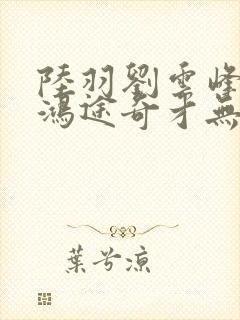 陸羽劉雲峰
鴻途奇才無
葉兮涼